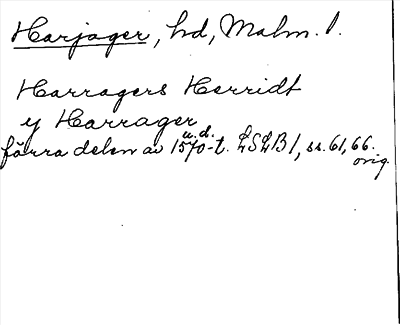 Harjager, hd, Malm. l.
Harragers Herridt
y Harrager
u.d.
förra delen av 1570-t. LSLB 1, ss. 61, 66.
orig.